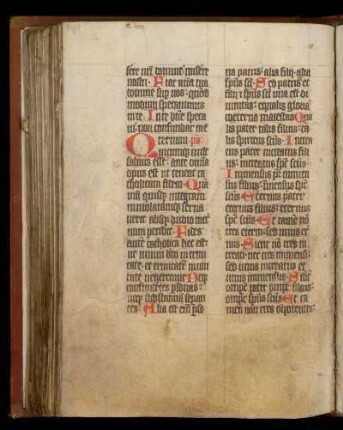 sere nr̄i domine misere
nostri. Fiat mīa tua
domine sup nos: quēad
modum sperauimus
in te. In te dn̄e spera
ui: non confundar in e
Quicumqꝫ uult
saluus esse: ante omīa
opus est ut teneat ca
tholicam fidem. Quā
nisi quisqꝫ integrā
inuiolatamqꝫ serua
uerit: absqꝫ dubio
num peribit. Fides
autē catholica hec est:
ut unum deū in trini
tate: et trinitatē in uni
tate ueneremur. Neqꝫ
confundentes psonas:
neqꝫ substantiā separan
tes. Alia est eni psō
na patris: alia filii: alia
spūs sc̄i. Sed patris et
filii et spūs sc̄i una est di
uinitas: equalis gloria
coeterna maiestas. Qua
lis pater talis filius: ta
lis spiritus sc̄us. Increa
tus pater increatus fili
us: increatus spc̄ sc̄us.
Inmensus pr̄ inmen
sus filius: inmensus spc̄
sc̄us. Eternus pater
eternus filius: eternus
spc̄ sc̄us. Et tamē nō
tres eterni: sed unus et
nus. Sicut nō tres in
creati: nec tres inmensi:
sed unus increatus et
unus inmensus. Simil
omps pater omps filius:
omps spūs sc̄us. Et ta
men non tres oīpotentes: